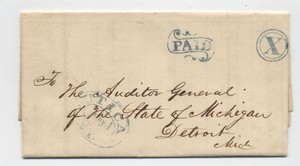 PAID
X
To
The Auditor General
of The State of Michigan
Detroit
Mich